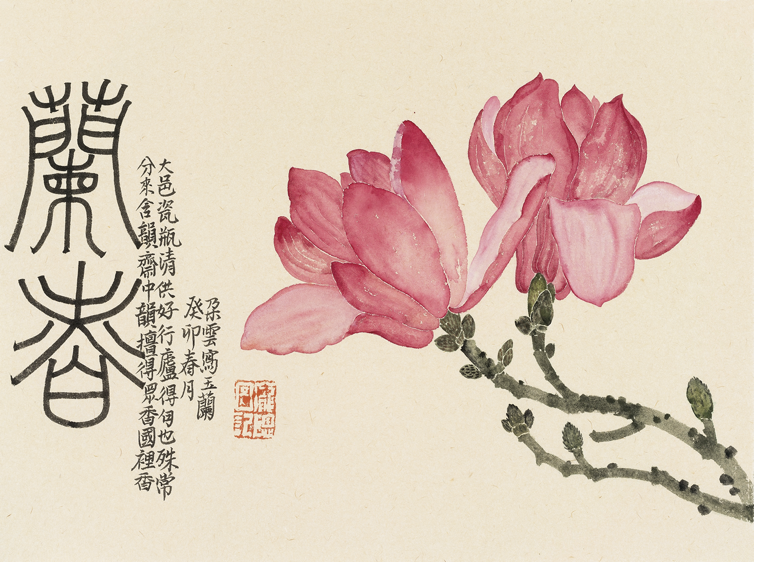 蘭香
大邑瓷瓶清供好行廬得伺也殊常
分來含韻齋中韻擅得眾香國裡香
朶雲寫玉蘭
癸卯春月